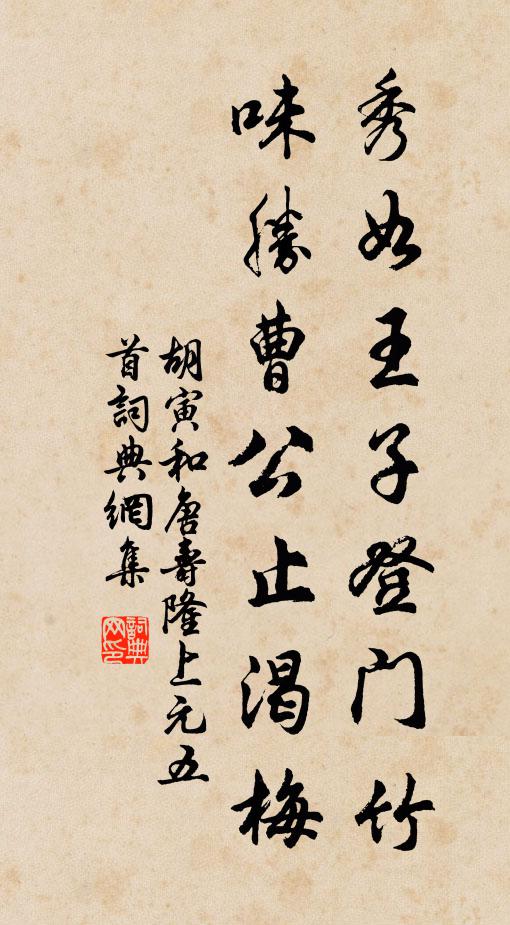 秀如王子登門竹
味勝曹公止渴梅
胡寅和唐壽隆上元五
首詞典網集
詞典網印